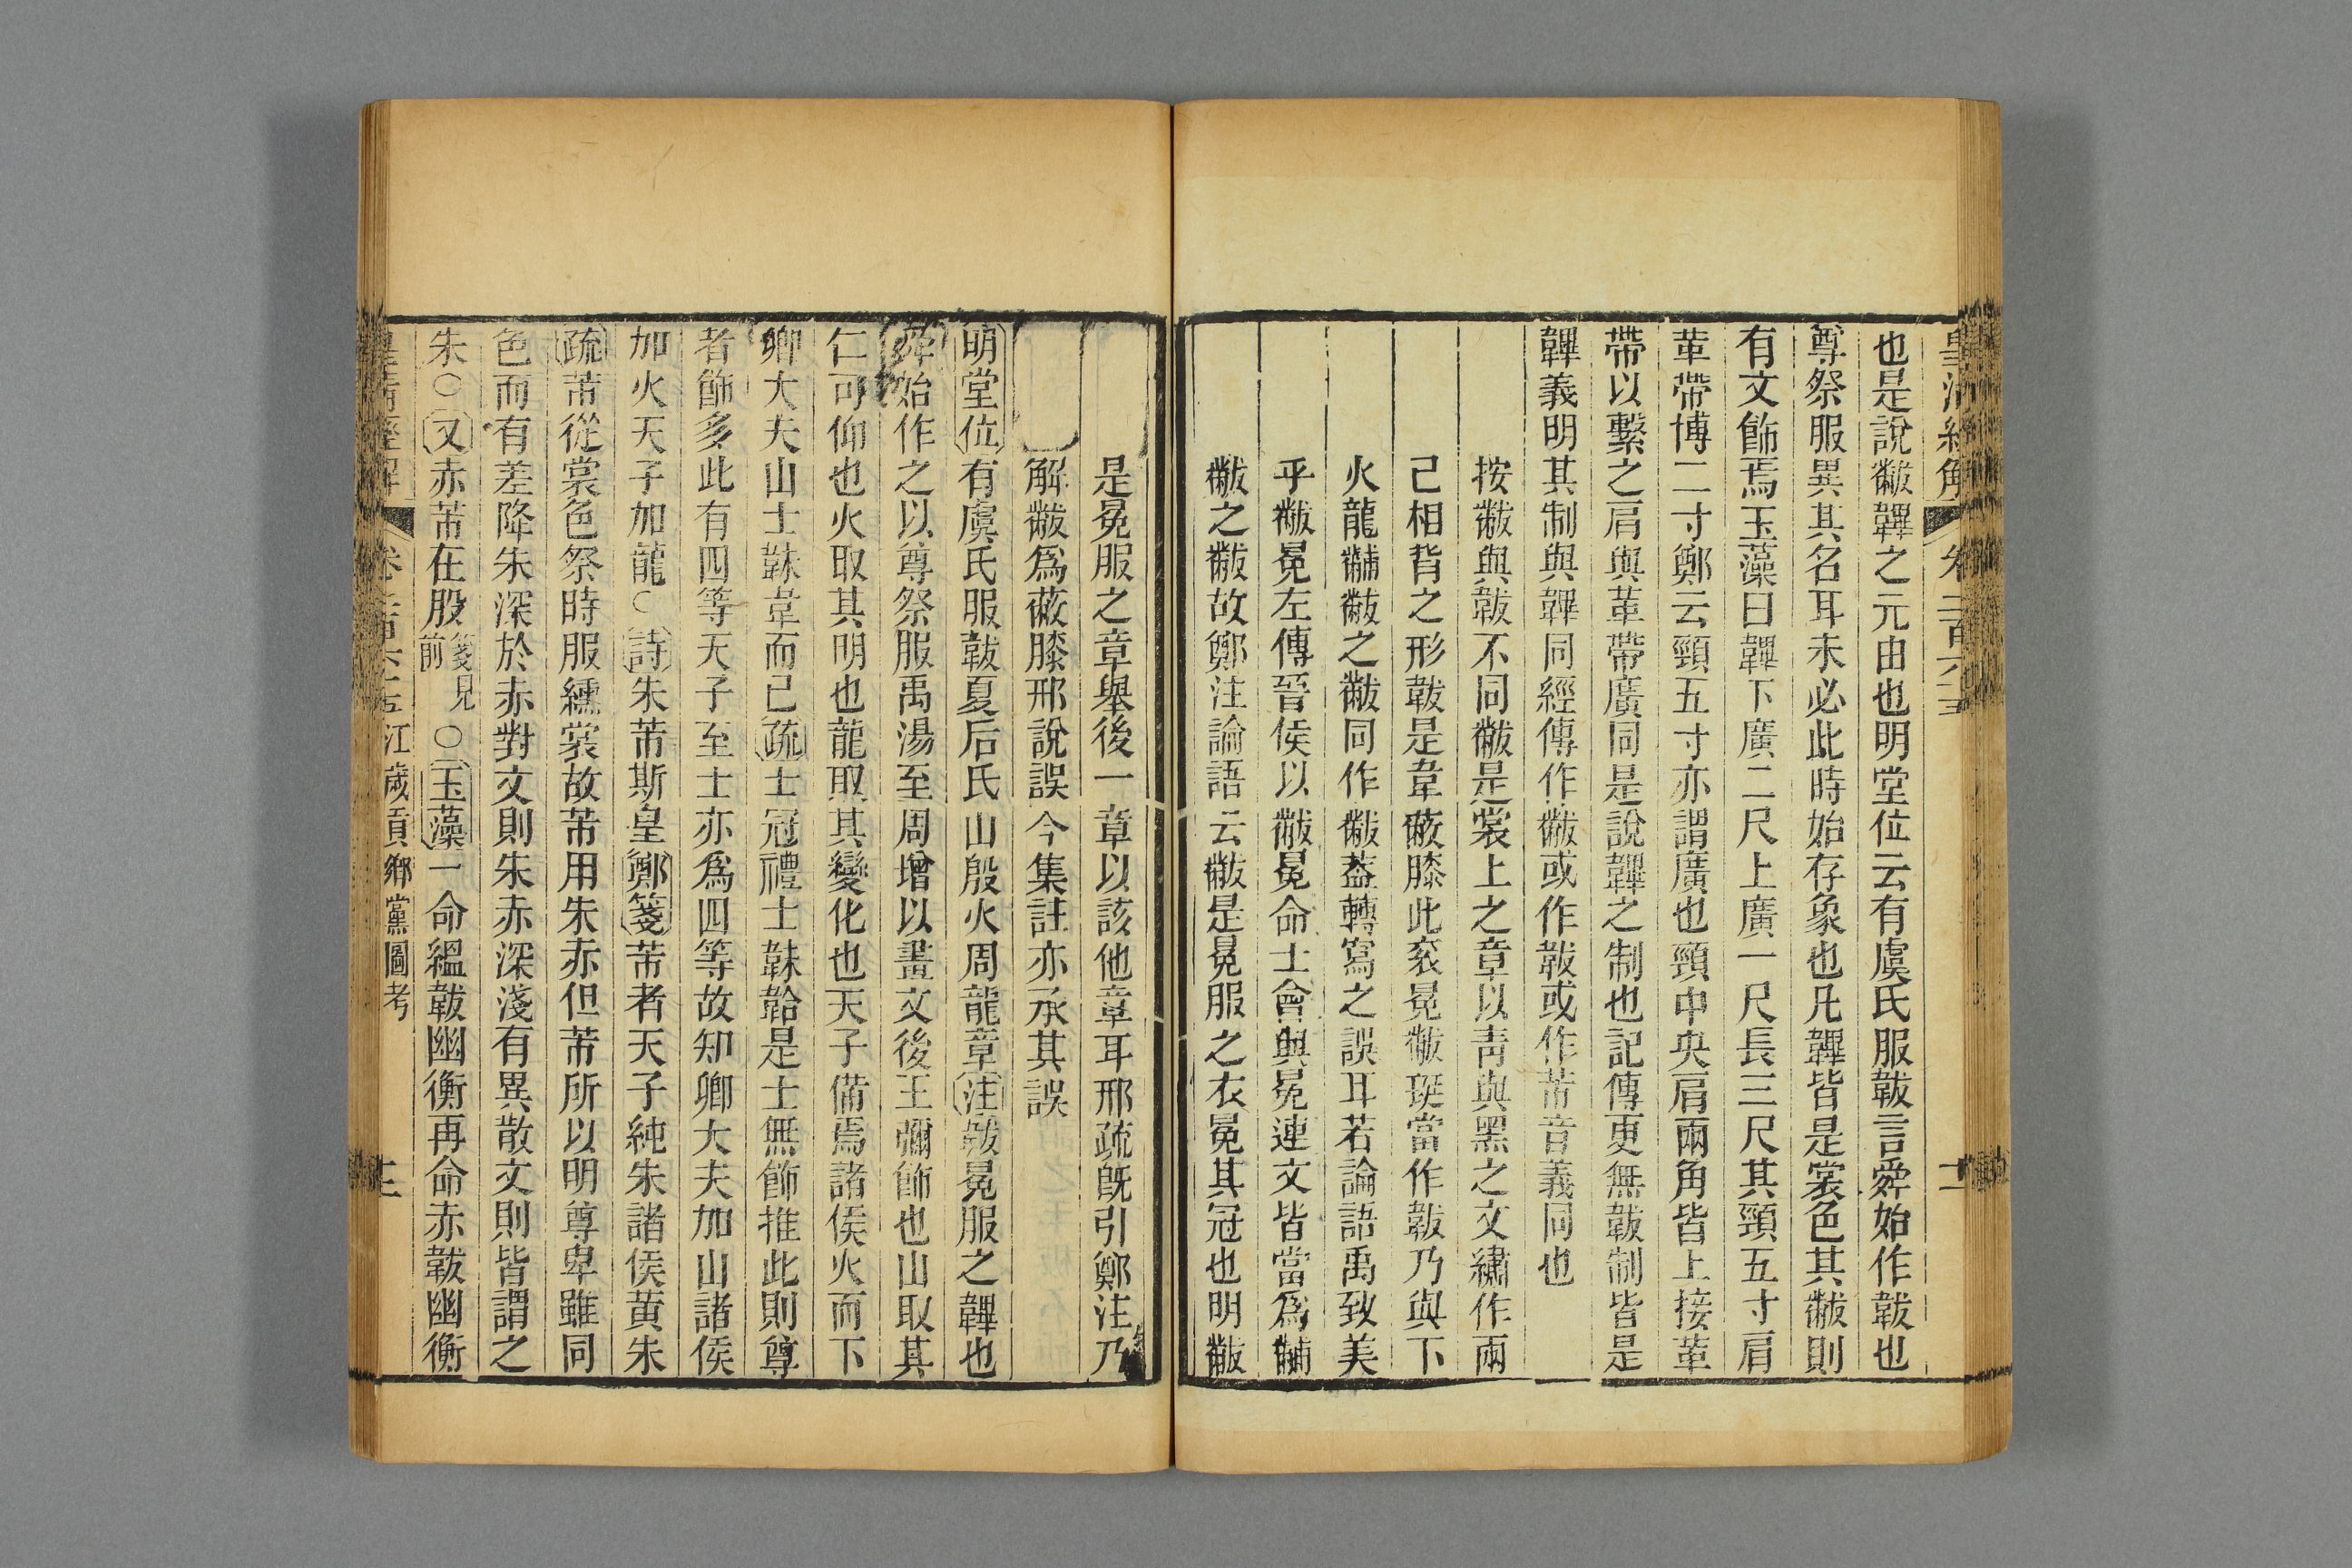 皇清經解 卷二百六十三 十二
也是說黻韠之元由也明堂位云有虞氏服韍言舜始作韍也
尊祭服異其名耳未必此時始存象也凡韠皆是裳色其黻則
有文飾焉玉藻曰韠下廣二尺上廣一尺長三尺其頸五寸肩
革帶博二寸鄭云頸五寸亦謂廣也頸中央肩兩角皆上接革
帶以繫之肩與革帶廣同是說韠之制也記傳更無韍制皆是
韠義明其制與韠同經傳作黻或作韍或作芾音義同也
按黻與韍不同黻是裳上之章以靑與黑之文繡作兩
己相背之形韍是韋蔽膝此衮冕黻珽當作韍乃與下
火龍黼黻之黻同作黻葢轉寫之誤耳若論語禹致美
乎黻冕左傳晉侯以黻冕命士會與冕連文皆當爲黼
黻之黻故鄭注論語云黻是冕服之衣冕其冠也明黻
是冕服之章舉後一章以該他章耳邢疏旣引鄭注乃
解黻爲蔽膝邢說誤今集註亦承其誤
明堂位有虞氏服韍夏后氏山殷火周龍章注韍冕服之韠也
舜始作之以尊祭服禹湯至周增以畫文後王彌飾也山取其
仁可仰也火取其明也龍取其變化也天子備焉諸侯火而下
卿大夫山士韎韋而已疏士冠禮士韎韐是士無飾推此則尊
者飾多此有四等天子至士亦爲四等故知卿大夫加山諸侯
加火天子加龍○詩朱芾斯皇鄭箋芾者天子純朱諸侯黄朱
疏芾從裳色祭時服纁裳故芾用朱赤但芾所以明尊卑雖同
色而有差降朱深於赤對文則朱赤深淺有異散文則皆謂之
朱○又赤芾在股箋見前○玉藻一命縕韍幽衡再命赤韍幽衡
皇清經解 江歲貢鄉黨圖考